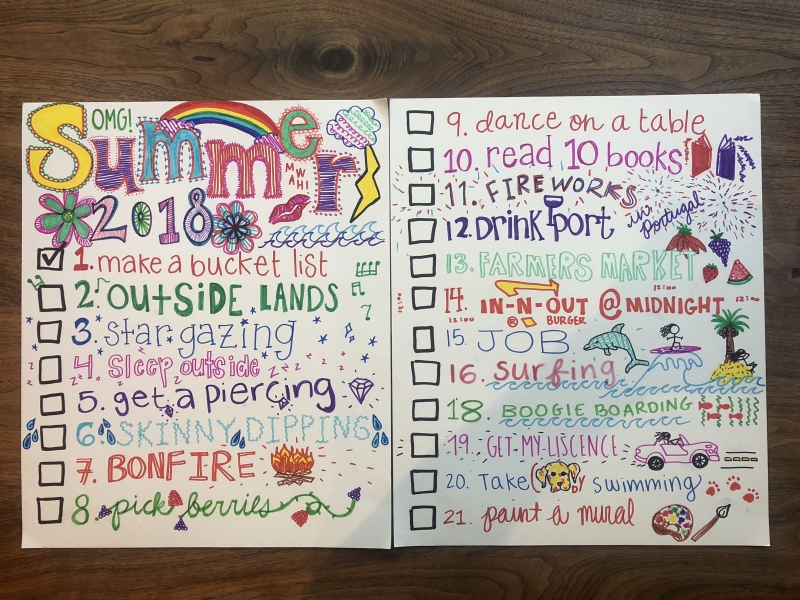 OMG!
Summer
MWAH!
2018
1. make a bucket list
2. OUTSIDE LANDS
3. star gazing
4. Sleep outside
z z z z z z
5. get a piercing
6. SKINNY DIPPING
7. BONFIRE
8. pick berries
9. dance on a table
10. read 10 books
11. FIREWORKS
12. DRINK PORT in Portugal
13. FARMERS MARKET
14. IN-N-OUT @ MIDNIGHT
® BURGER
12:00 12:00 12:00 12:00
15. JOB
16. surfing
18. BOOGIE BOARDING
19. GET MY LISCENCE
20. Take BY swimming
21. paint a mural